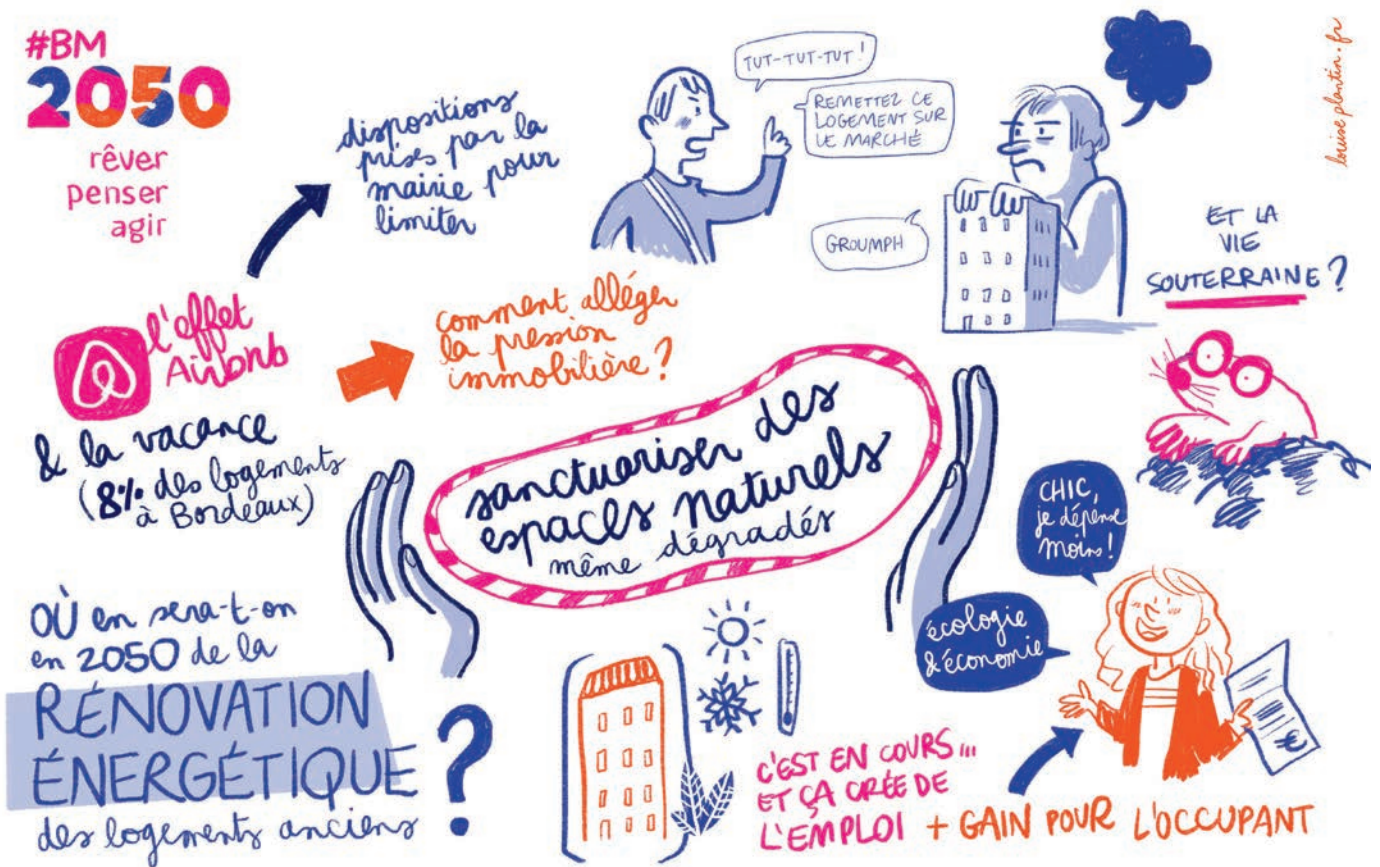 #BM
2050
rêver
penser
agir
dispositions
prises par la
mairie pour
limiter
TUT-TUT-TUT !
REMETTEZ CE
LOGEMENT SUR
LE MARCHÉ
GROUMPH
louise plantin.fr
ET LA
VIE
SOUTERRAINE ?
l'effet
Airbnb
& la vacance
(8% des logements
à Bordeaux)
comment alléger
la pression
immobilière ?
sanctuariser des
espaces naturels
même dégradés
CHIC,
je dépense
moins !
écologie
& économie
€
OÙ en sera-t-on
en 2050 de la
RÉNOVATION
ÉNERGÉTIQUE
des logements anciens
?
C'EST EN COURS...
ET ÇA CRÉE DE
L'EMPLOI + GAIN POUR L'OCCUPANT